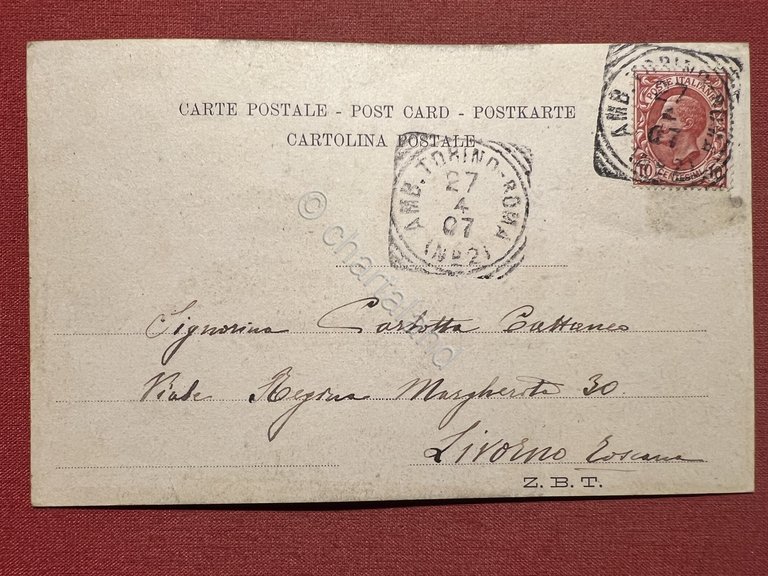 CARTE POSTALE - POST CARD - POSTKARTE
CARTOLINA POSTALE
POSTE ITALIANE
AMB. TORINO-ROMA
27
4
07
AMB. TORINO-ROMA
27
4
07
(N° 2)
© chartaland
Signorina Carlotta Cattaneo
Viale Regina Margherita 30
Livorno Toscana
Z. B. T.